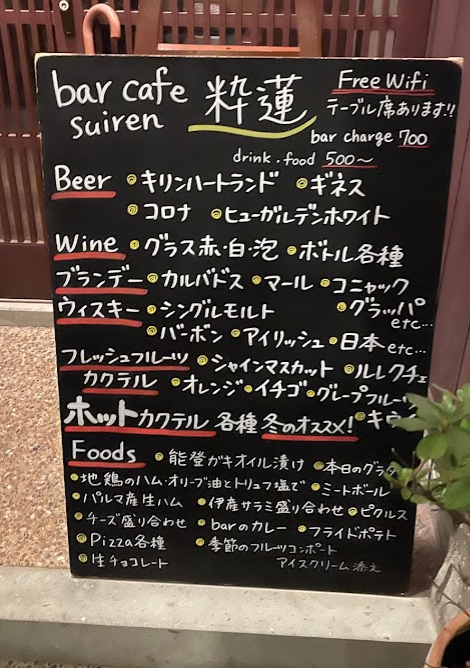 bar cafe 粋蓮
suiren
Free Wifi
テーブル席あります!!
bar charge 700
drink.food 500〜
Beer ・キリンハートランド ・ギネス
・コロナ ・ヒューガルデンホワイト
Wine ・グラス赤・白・泡 ・ボトル各種
ブランデー ・カルバドス ・マール ・コニャック
・グラッパ etc...
ウィスキー ・シングルモルト
・バーボン ・アイリッシュ ・日本 etc...
フレッシュフルーツ ・シャインマスカット ・ルレクチェ
カクテル ・オレンジ ・イチゴ ・グレープフルーツ
ホットカクテル 各種 冬のオススメ! ・キウ
Foods ・能登ガキオイル漬け ・本日のグラタ
・地鶏のハム・オリーブ油とトリュフ塩で ・ミートボール
・パルマ産生ハム ・伊産サラミ盛り合わせ ・ピクルス
・チーズ盛り合わせ ・barのカレー ・フライドポテト
・Pizza各種 ・季節のフルーツコンポート
・生チョコレート アイスクリーム添え